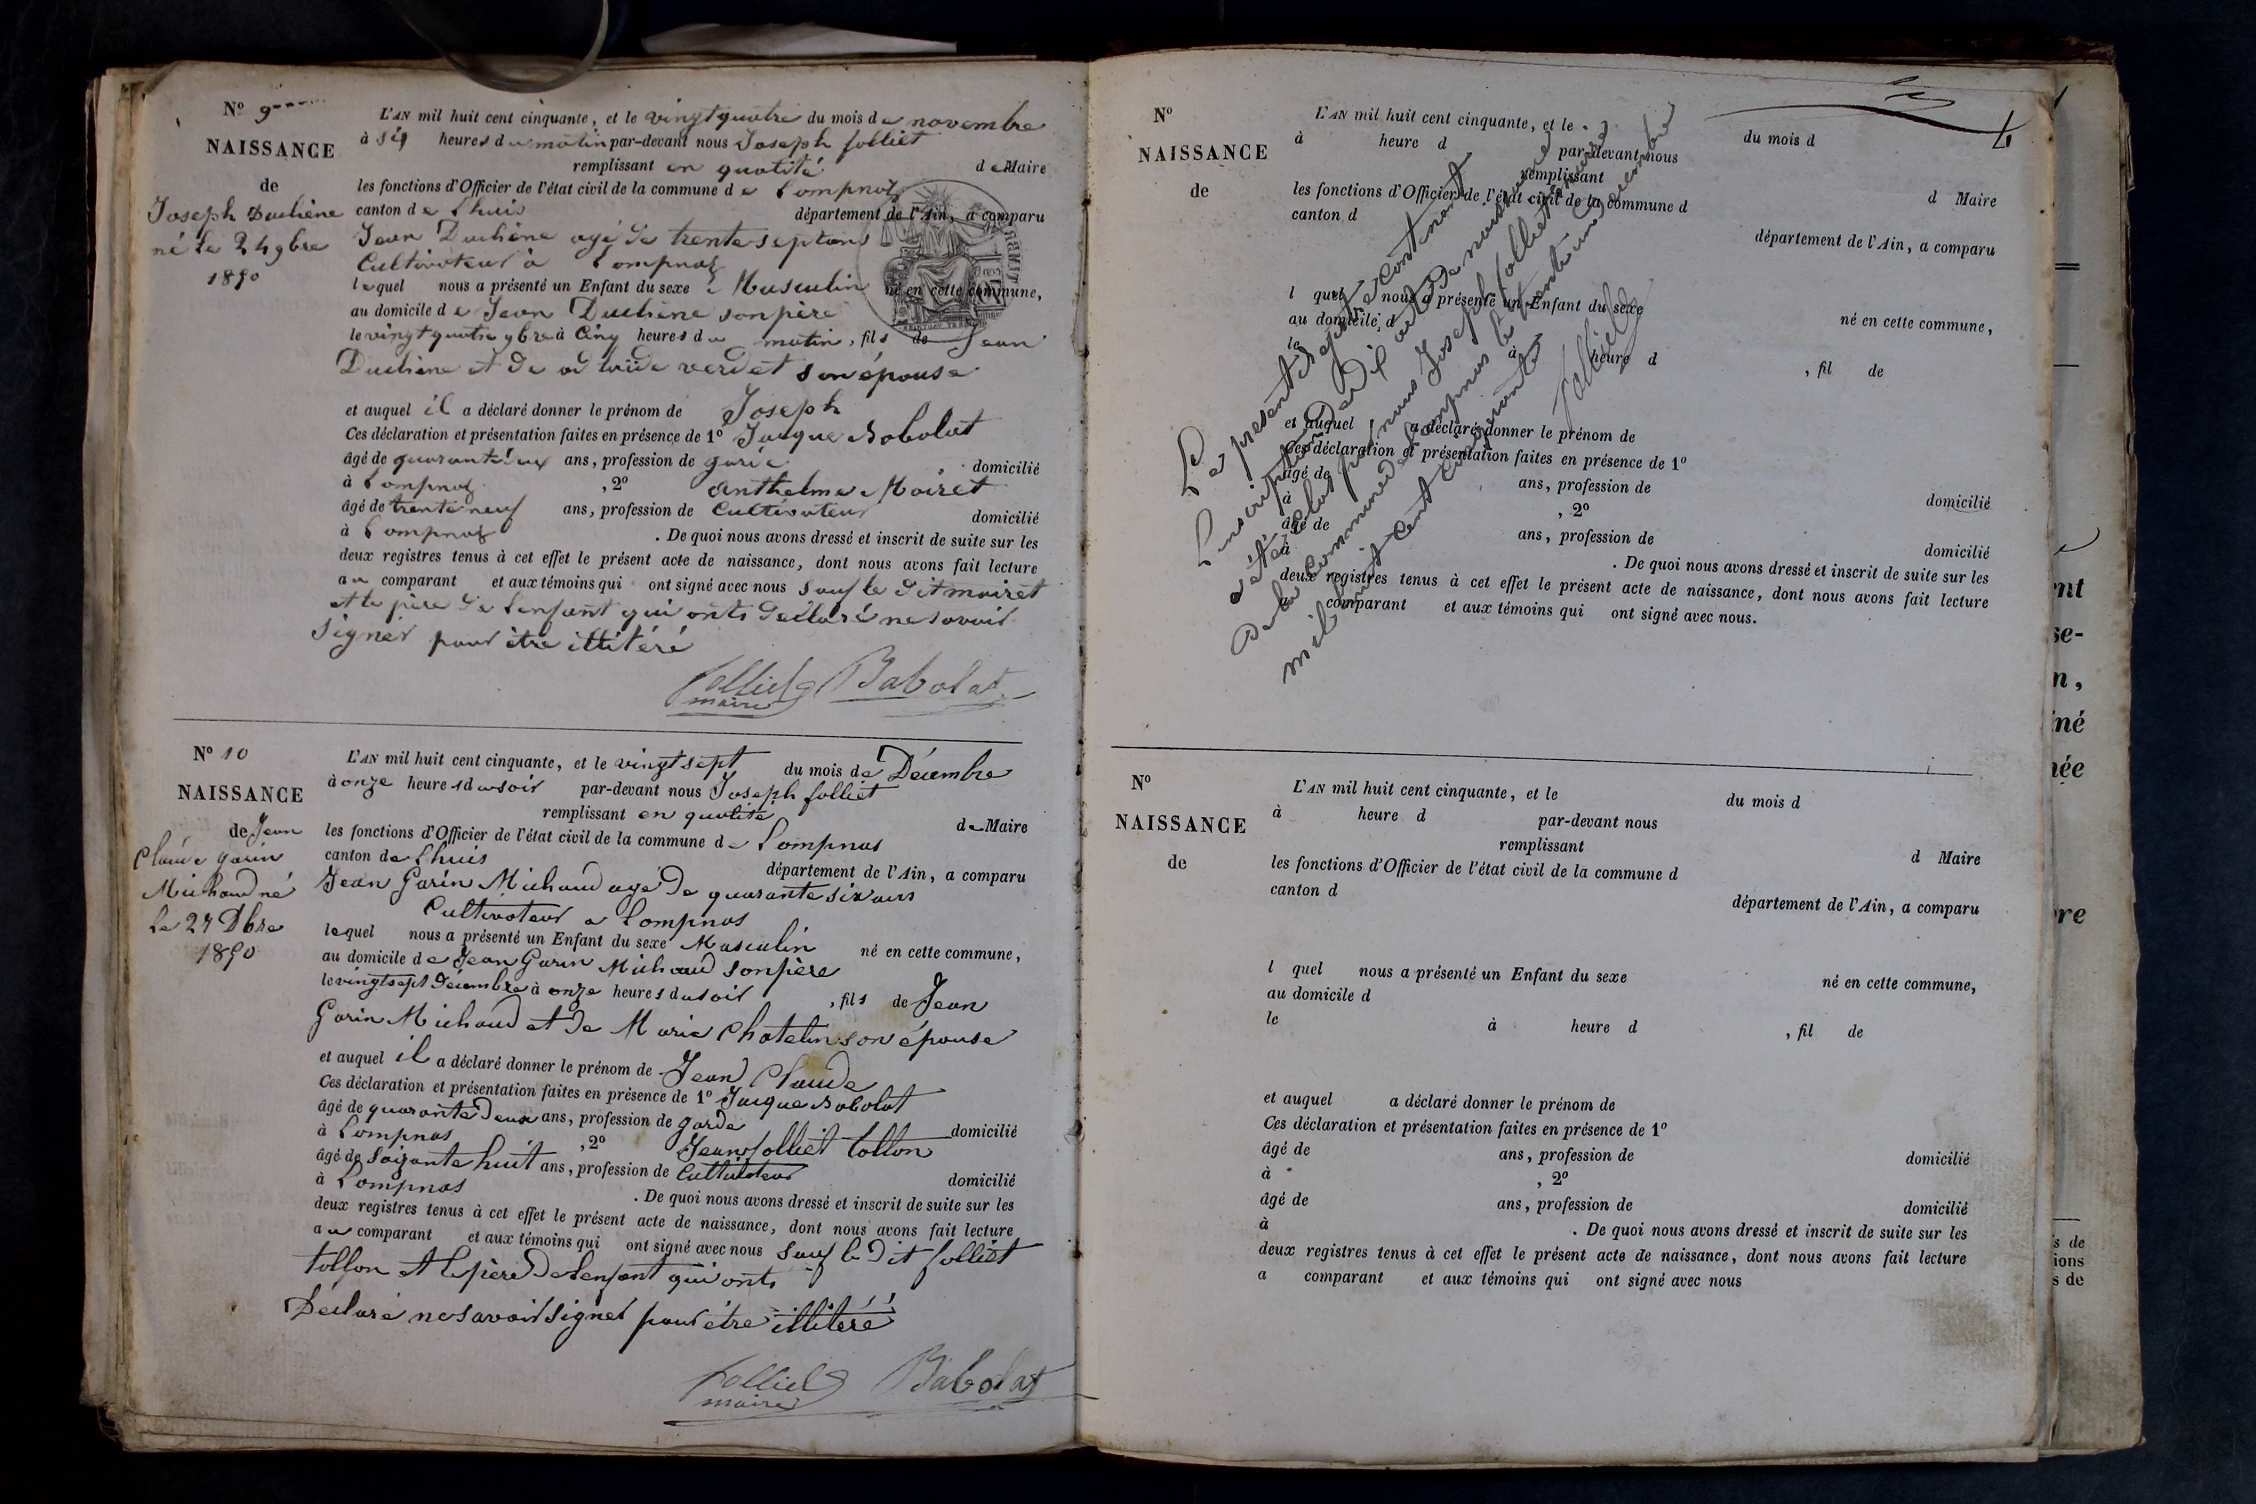 Nº 9
NAISSANCE
de
Joseph Duchêne
né le 24 9bre
1850
L'AN mil huit cent cinquante, et le vingt quatre du mois de novembre
à six heures du matin par-devant nous Joseph folliet
remplissant en qualité de Maire
les fonctions d'Officier de l'état civil de la commune de Lompnaz
canton de Lhuis département de l'Ain, a comparu
Jean Duchêne agé de trente sept ans
Cultivateur à Lompnaz
lequel nous a présenté un Enfant du sexe Masculin né en cette commune,
au domicile de Jean Duchêne son père
le vingt quatre 9bre à Cinq heures du matin, fils de Jean
Duchêne et de verdet son épouse
et auquel il a déclaré donner le prénom de Joseph
Ces déclaration et présentation faites en présence de 1º Jacque Babolat
âgé de quarante deux ans, profession de garde domicilié
à Lompnaz, 2º Anthelme Moiret
âgé de trente neuf ans, profession de Cultivateur domicilié
à Lompnaz. De quoi nous avons dressé et inscrit de suite sur les
deux registres tenus à cet effet le présent acte de naissance, dont nous avons fait lecture
au comparant et aux témoins qui ont signé avec nous sauf le dit moiret
et le père de l'enfant qui onts déclaré ne savoir
signer pour être illitéré
folliet Babolat
maire
Nº 10
NAISSANCE
de Jean
Claude garin
Michaud né
le 27 Dbre
1850
L'AN mil huit cent cinquante, et le vingt sept du mois de Décembre
à onze heures du soir par-devant nous Joseph folliet
remplissant en qualité de Maire
les fonctions d'Officier de l'état civil de la commune de Lompnas
canton de Lhuis département de l'Ain, a comparu
Jean Garin Michaud agé de quarante six ans
Cultivateur a Lompnas
lequel nous a présenté un Enfant du sexe Masculin né en cette commune,
au domicile de Jean Garin Michaud son père
le vingt sept Décembre à onze heures du soir, fils de Jean
Garin Michaud et de Marie Chatelin son épouse
et auquel il a déclaré donner le prénom de Jean Claude
Ces déclaration et présentation faites en présence de 1º Jacque Babolat
âgé de quarante deux ans, profession de garde domicilié
à Lompnas, 2º Jean folliet tollon
âgé de soixante huit ans, profession de Cultivateur domicilié
à Lompnas. De quoi nous avons dressé et inscrit de suite sur les
deux registres tenus à cet effet le présent acte de naissance, dont nous avons fait lecture
au comparant et aux témoins qui ont signé avec nous sauf le dit folliet
tollon et le père de lenfant qui onts
Déclaré ne savoir signer pour être illitéré
folliet Babolat
maire
Nº
NAISSANCE
de
L'AN mil huit cent cinquante, et le du mois d
à heure d par-devant nous
remplissant d Maire
les fonctions d'Officier de l'état civil de la commune d
canton d département de l'Ain, a comparu
l quel nous a présenté un Enfant du sexe né en cette commune,
au domicile d
le à heure d , fil de
et auquel a déclaré donner le prénom de
Ces déclaration et présentation faites en présence de 1º
âgé de ans, profession de domicilié
à , 2º
âgé de ans, profession de domicilié
à . De quoi nous avons dressé et inscrit de suite sur les
deux registres tenus à cet effet le présent acte de naissance, dont nous avons fait lecture
comparant et aux témoins qui ont signé avec nous.
Le présent registre contenant
L'inscription de Dix actes de naissance
a été clos par nous Joseph folliet maire
de la commune de Lompnas le trente un Décembre
mil huit cent cinquante
folliet
Nº
NAISSANCE
de
L'AN mil huit cent cinquante, et le du mois d
à heure d par-devant nous
remplissant d Maire
les fonctions d'Officier de l'état civil de la commune d
canton d département de l'Ain, a comparu
l quel nous a présenté un Enfant du sexe né en cette commune,
au domicile d
le à heure d , fil de
et auquel a déclaré donner le prénom de
Ces déclaration et présentation faites en présence de 1º
âgé de ans, profession de domicilié
à , 2º
âgé de ans, profession de domicilié
à . De quoi nous avons dressé et inscrit de suite sur les
deux registres tenus à cet effet le présent acte de naissance, dont nous avons fait lecture
a comparant et aux témoins qui ont signé avec nous